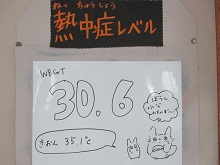 ねっ ちゅうしょう
熱中症レベル
WBGT
30.6
きおん 35.1℃
ぼうし